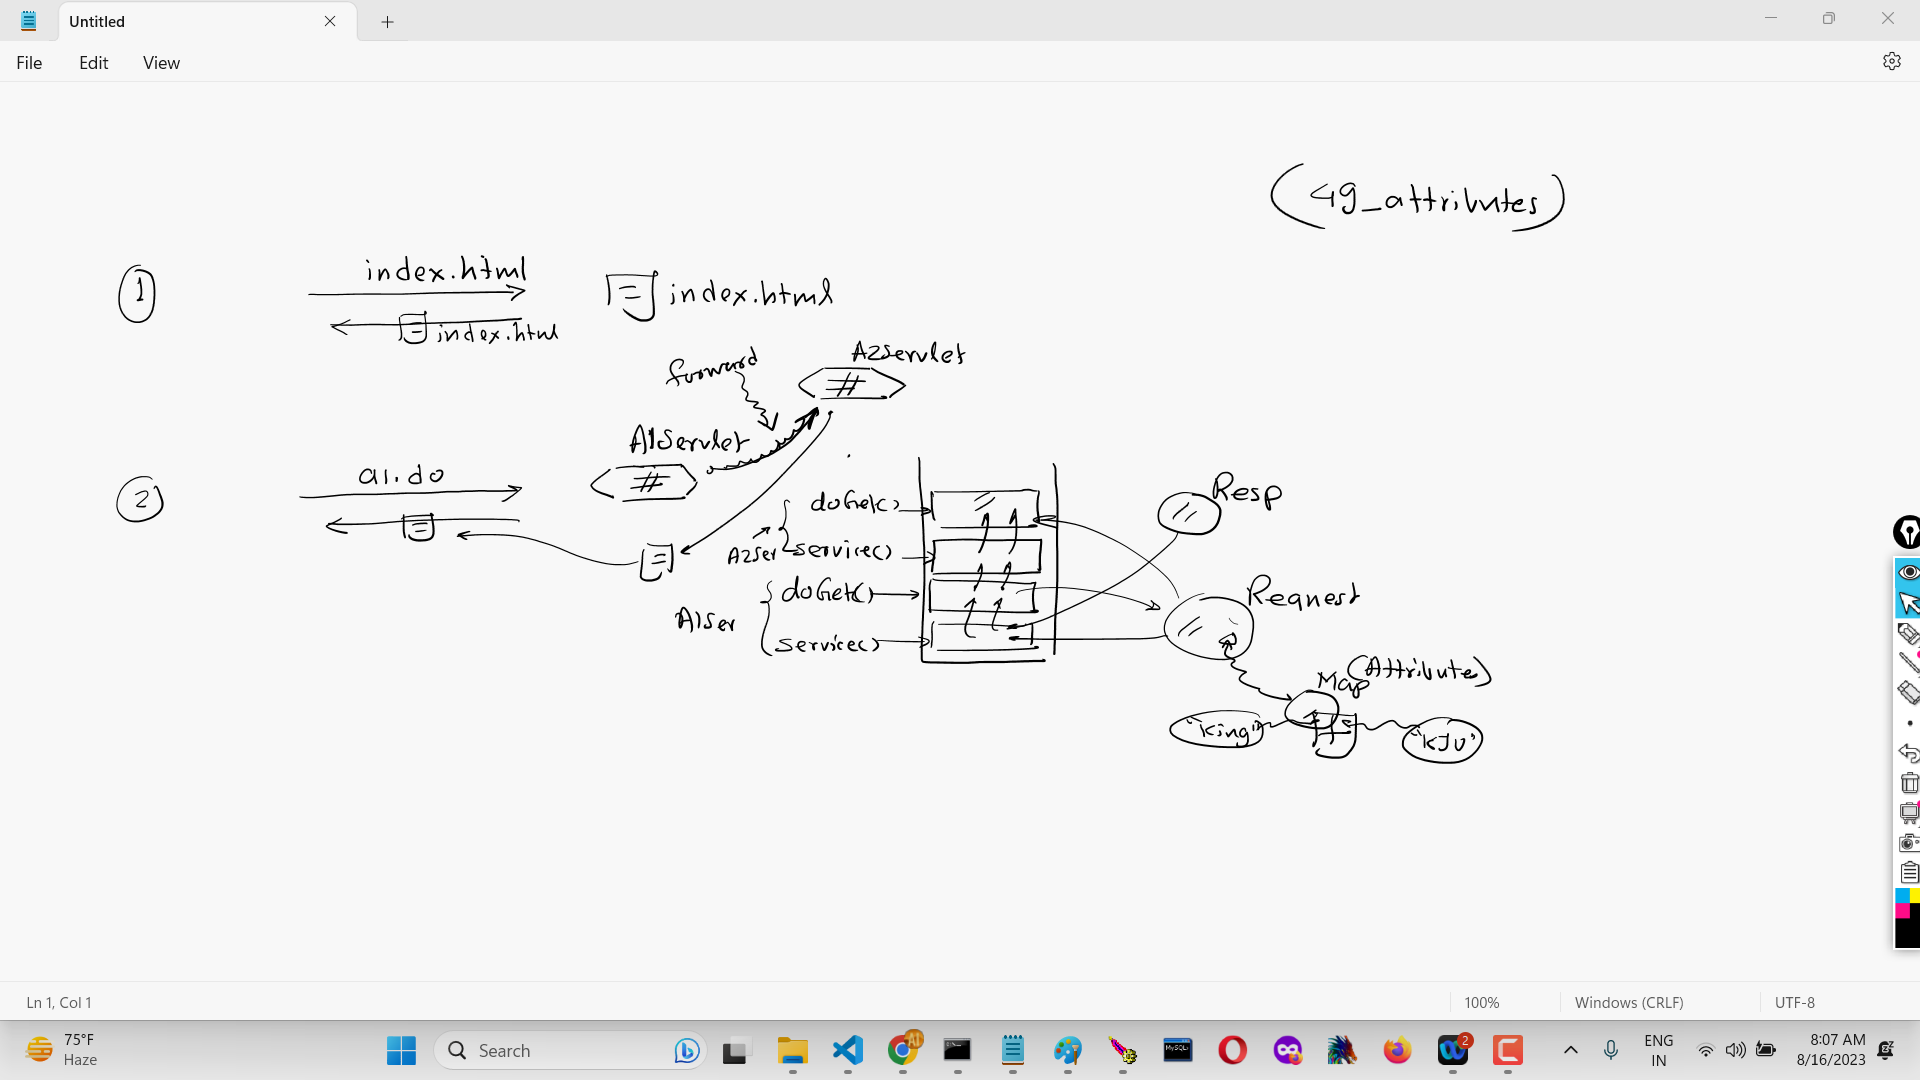 Untitled
File Edit View
(49_attributes)
1
index.html
index.html
index.html
forward
A2Servlet
A1Servlet
2
a1.do
doGet()
A2Ser
service()
doGet()
A1Ser
service()
Resp
Request
Map (Attribute)
"King"
"KJU"
Ln 1, Col 1
100%
Windows (CRLF)
UTF-8
75°F
Haze
Search
MySQL
2
ENG
IN
8:07 AM
8/16/2023